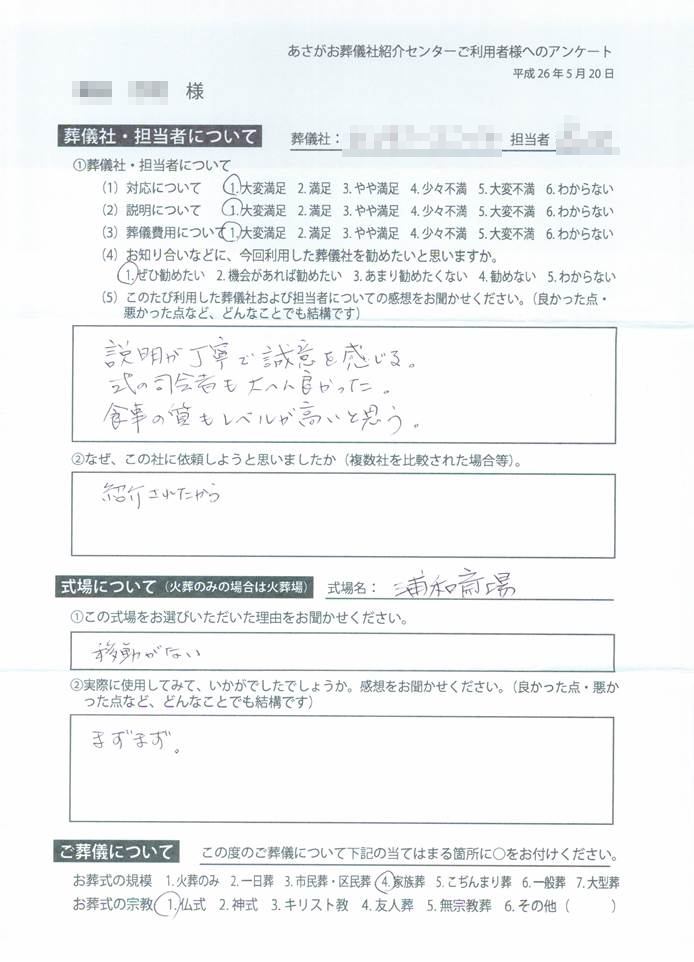 あさがお葬儀社紹介センターご利用者様へのアンケート
平成26年5月20日
様
葬儀社・担当者について 葬儀社： 担当者
①葬儀社・担当者について
(1) 対応について 1.大変満足 2.満足 3.やや満足 4.少々不満 5.大変不満 6.わからない
(2) 説明について 1.大変満足 2.満足 3.やや満足 4.少々不満 5.大変不満 6.わからない
(3) 葬儀費用について 1.大変満足 2.満足 3.やや満足 4.少々不満 5.大変不満 6.わからない
(4) お知り合いなどに、今回利用した葬儀社を勧めたいと思いますか。
1.ぜひ勧めたい 2.機会があれば勧めたい 3.あまり勧めたくない 4.勧めない 5.わからない
(5) このたび利用した葬儀社および担当者についての感想をお聞かせください。（良かった点・
悪かった点など、どんなことでも結構です）
説明が丁寧で誠意を感じる。
式の司会者も大へん良かった。
食事の質もレベルが高いと思う。
②なぜ、この社に依頼しようと思いましたか（複数社を比較された場合等）。
紹介されたから
式場について（火葬のみの場合は火葬場） 式場名： 浦和斎場
①この式場をお選びいただいた理由をお聞かせください。
移動がない
②実際に使用してみて、いかがでしたでしょうか。感想をお聞かせください。（良かった点・悪か
った点など、どんなことでも結構です）
まずまず。
ご葬儀について この度のご葬儀について下記の当てはまる箇所に○をお付けください。
お葬式の規模 1.火葬のみ 2.一日葬 3.市民葬・区民葬 4.家族葬 5.こぢんまり葬 6.一般葬 7.大型葬
お葬式の宗教 1.仏式 2.神式 3.キリスト教 4.友人葬 5.無宗教葬 6.その他（ ）